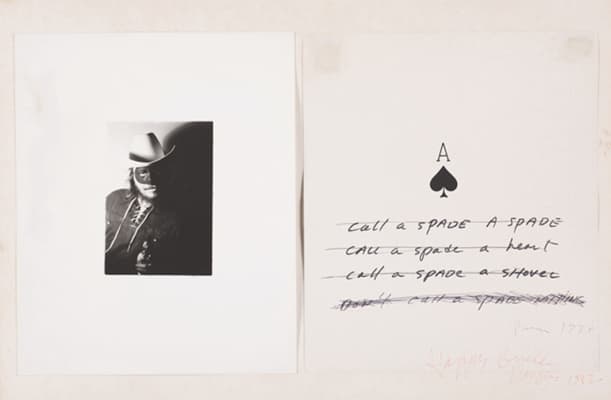 A
call a SPADE A SPADE
CALL a spade a heart
call a SPADE a SHOVEL
DON'T call a SPADE NOTHING
Happy